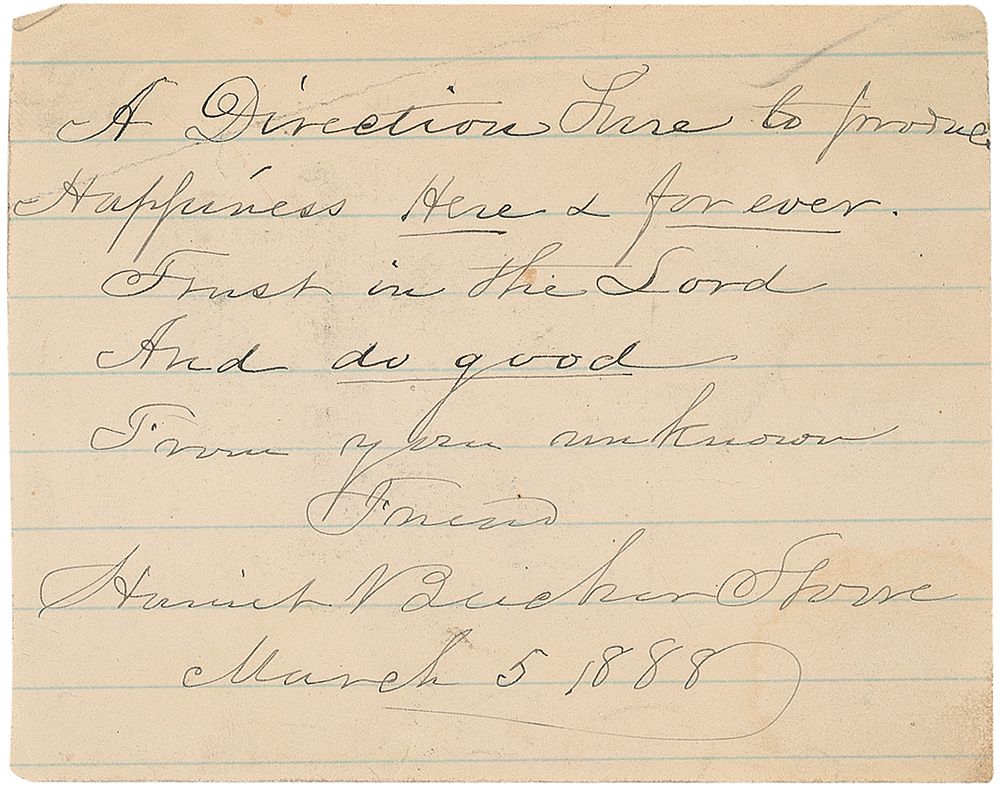 A Direction Sure to produce
Happiness Here & for ever.
Trust in the Lord
And do good
From you unknown
Friend
Harriet Beecher Stowe
March 5 1888